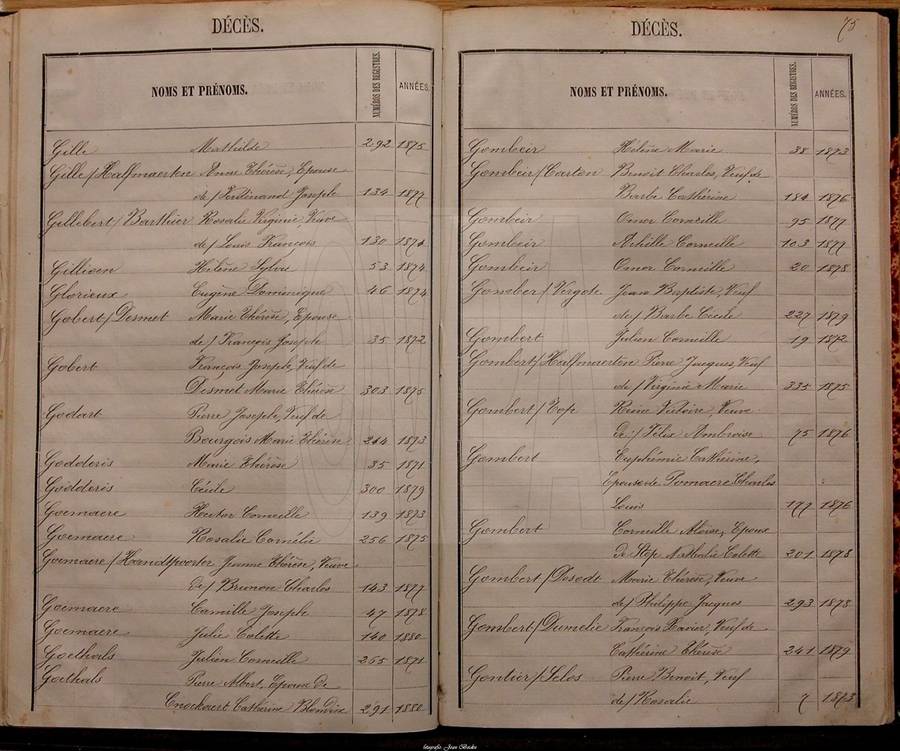 DÉCÈS.
NOMS ET PRÉNOMS. NUMÉROS DES REGISTRES. ANNÉES.
Gille Mathilde 292 1875
Gille/Halfmaerten Anne Thérèse, Epouse
de/Ferdinand Joseph 134 1877
Gillebert/Barthier Rosalie Virginie, Veuve
de/Louis François 130 1871
Gillioen Hélène Sylvie 53 1874
Glorieux Eugène Dominique 46 1874
Gobert/Desmet Marie Thérèse, Epouse
de/François Joseph 35 1872
Gobert François Joseph, Veuf de
Desmet Marie Thérèse 303 1875
Godart Pierre Joseph, Veuf de
Bourgois Marie Thérèse 214 1873
Godderis Marie Thérèse 85 1871
Godderis Cécile 300 1879
Goemaere Hector Corneille 139 1873
Goemaere Rosalie Cornélie 256 1875
Goemaere/Handtpoorter Jeanne Thérèse, Veuve
de/Brunon Charles 143 1877
Goemaere Camille Joseph 47 1878
Goemaere Julie Colette 140 1880
Goethals Julien Corneille 265 1871
Goethals Pierre Albert, Epoux de
Cnockaert Catherine Blondine 291 1880
DÉCÈS. 75
NOMS ET PRÉNOMS. NUMÉROS DES REGISTRES. ANNÉES.
Gombeir Hélène Marie 38 1873
Gombeir/Carton Benoit Charles, Veuf de
Barbe Cathérine 181 1876
Gombeir Omer Corneille 95 1877
Gombeir Achille Corneille 103 1877
Gombeir Omer Corneille 20 1878
Gomber/Vergote Jean Baptiste, Veuf
de/Barbe Cécile 227 1879
Gombert Julien Corneille 19 1872
Gombert/Halfmaerten Pierre Jacques, Veuf
de/Virginie Marie 335 1875
Gombert/Top Reine Victoire, Veuve
de/Félix Ambroise 75 1876
Gombert Euphémie Cathérine,
Epouse de Pomaere Charles
Louis 177 1876
Gombert Corneille Aloïse, Epoux
de Stop Nathalie Colette 201 1878
Gombert/Desede Marie Thérèse, Veuve
de/Philippe Jacques 293 1878
Gombert/Dumelie François Xavier, Veuf de
Cathérine Thérèse 241 1879
Gontier/Selos Pierre Benoit, Veuf
de/Rosalie 7 1873